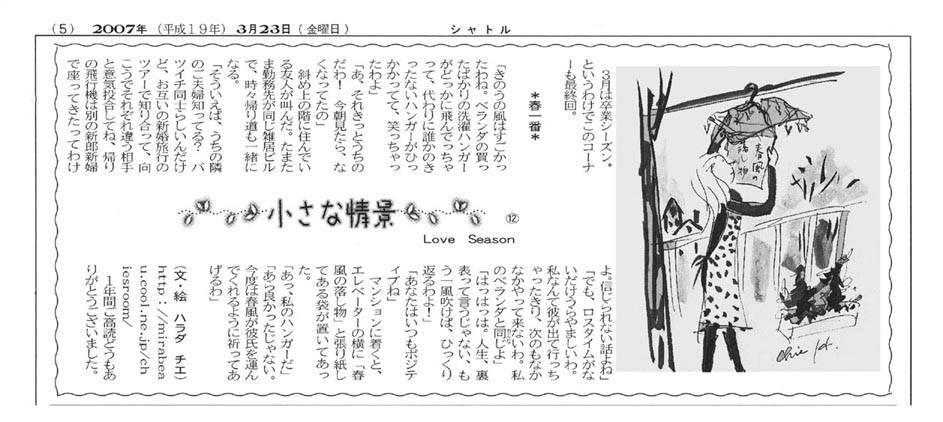 (5) 2007年 (平成19年) 3月23日(金曜日) シャトル
3月は卒業シーズン。
というわけでこのコーナ
ーも最終回。
*春一番*
「きのうの風はすごかっ
たわね。ベランダの買っ
たばかりの洗濯ハンガー
がどっかに飛んでっちゃ
って、代わりに誰かのき
ったないハンガーがひっ
かかってて、笑っちゃっ
たわよ」
「あ、それきっとうちの
だわ! 今朝見たら、な
くなってたの」
斜め上の階に住んでい
る友人が叫んだ。たまた
ま勤務先が同じ雑居ビル
で、時々帰り道も一緒に
なる。
「そういえば、うちの隣
のご夫婦知ってる? バ
ツイチ同士らしいんだけ
ど、お互いの新婚旅行の
ツアーで知り合って、向
こうでそれぞれ違う相手
と意気投合してね、帰り
の飛行機は別の新郎新婦
で座ってきたってわけ
小さな情景 ⑫
Love Season
よ。信じられない話よね」
「でも、ロスタイムがな
いだけうらやましいわ。
私なんて彼が出て行っち
ゃったきり、次のもなか
なかやって来ないわ。私
のベランダと同じよ」
「はっはっは。人生、裏
表って言うじゃない、も
う一風吹けば、ひっくり
返るわよ!」
「あなたはいつもポジテ
ィブね」
マンションに着くと、
エレベーターの横に「春
風の落し物」と張り紙し
てある袋が置いてあっ
た。
「あっ、私のハンガーだ」
「あら良かったじゃない。
今度は春風が彼氏を運ん
でくれるように祈ってあ
げるわ」
(文・絵 ハラダ チエ)
http://mirabea
u.cool.ne.jp/ch
iesroom/
1年間ご高読どうもあ
りがとうございました。
春風の
落し物